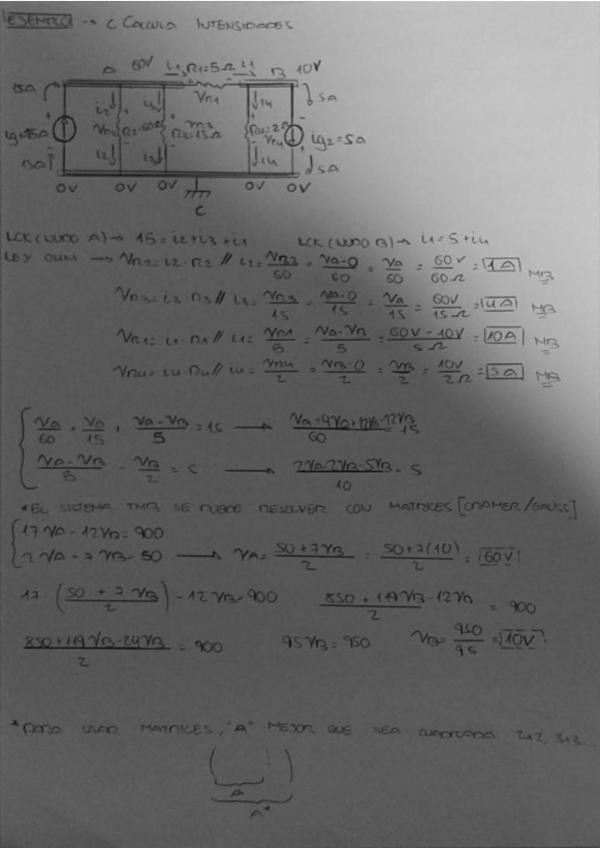 EJEMPLO → ¿ CALCULA INTENSIDADES
A 60V i1 R1=5Ω i1 B 10V
15A VR1 5A
i2 i3 i4
ig=15A VR2 R2=60Ω VR3 R3=15Ω R4=2Ω VR4 ig2=5A
15A i2 i3 i4 5A
0V 0V 0V 0V 0V
C
LCK (NUDO A) → 15=i2+i3+i1 LCK (NUDO B) → i1=5+i4
LEY OHM → VR2=i2·R2 // i2= VR2/60 = VA-0/60 = VA/60 = 60V/60Ω = 1A MB
VR3=i3·R3 // i3= VR3/15 = VA-0/15 = VA/15 = 60V/15Ω = 4A MB
VR1=i1·R1 // i1= VR1/5 = VA-VB/5 = 60V-10V/5Ω = 10A MB
VR4=i4·R4 // i4= VR4/2 = VB-0/2 = VB/2 = 10V/2Ω = 5A MB
VA/60 + VA/15 + VA-VB/5 = 15 → VA+4VA+12VA-12VB/60 = 15
VA-VB/5 - VB/2 = 5 → 2VA-2VB-5VB/10 = 5
*EL SISTEMA TMB SE PUEDE RESOLVER CON MATRICES [CRAMER/GAUSS]
17VA-12VB=900
2VA-7VB=50 → VA= 50+7VB/2 = 50+7(10)/2 = 60V
17·(50+7VB/2)-12VB=900 850+119VB/2-12VB = 900
850+119VB-24VB/2 = 900 95VB=950 VB= 950/95 = 10V
*PARA USAR MATRICES, "A" MEJOR QUE SEA CUADRADA 2x2, 3x3...
A
A*